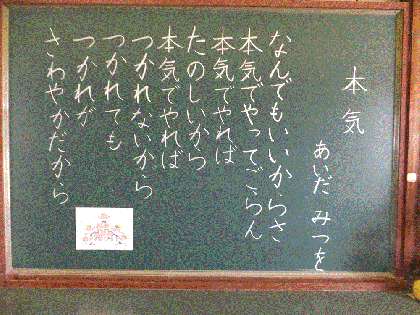 本気
あいだ みつを
なんでもいいからさ
本気でやってごらん
本気でやれば
たのしいから
本気でやれば
つかれないから
つかれても
つかれが
さわやかだから